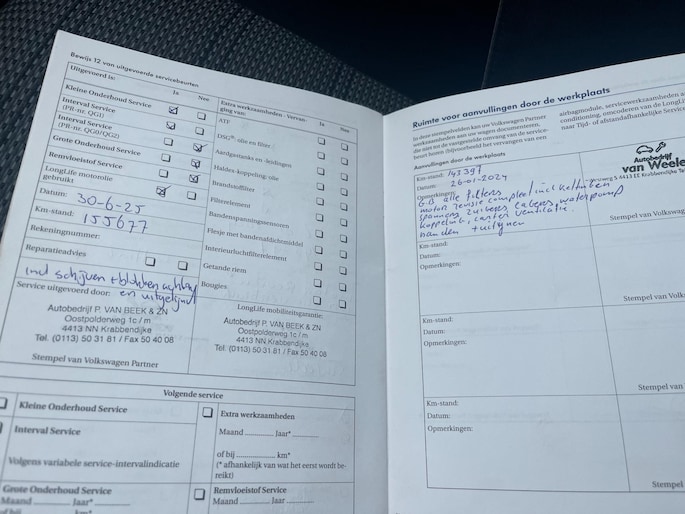 Bewijs 12 van uitgevoerde servicebeurten
Uitgevoerd is:
Ja Nee
Kleine Onderhoud Service
Interval Service
(PR-nr. QG1)
Interval Service
(PR-nr. QG0/QG2)
Grote Onderhoud Service
Remvloeistof Service
LongLife motorolie
gebruikt
Datum: 30-6-25
Km-stand: 155677
Rekeningnummer:
Reparatieadvies
incl schijven + blokken achter
en uitgelijnd
Service uitgevoerd door:
Autobedrijf P. VAN BEEK & ZN
Oostpolderweg 1c / m
4413 NN Krabbendijke
Tel. (0113) 50 31 81 / Fax 50 40 08
Stempel van Volkswagen Partner
Extra werkzaamheden - Vervan-
ging van:
Ja Nee
ATF
DSG®-olie en filter
Aardgastanks en -leidingen
Haldex-koppeling: olie
Brandstoffilter
Filterelement
Bandenspanningssensoren
Flesje met bandenafdichtmiddel
Interieurluchtfilterelement
Getande riem
Bougies
LongLife mobiliteitsgarantie:
Autobedrijf P. VAN BEEK & ZN
Oostpolderweg 1c / m
4413 NN Krabbendijke
Tel. (0113) 50 31 81 / Fax 50 40 08
Volgende service
Kleine Onderhoud Service
Interval Service
Volgens variabele service-intervalindicatie
Grote Onderhoud Service
Maand Jaar*
of bij km*
Extra werkzaamheden
Maand Jaar*
of bij km*
(* afhankelijk van wat het eerst wordt be-
reikt)
Remvloeistof Service
Maand Jaar
Ruimte voor aanvullingen door de werkplaats
In deze stempelvelden kan uw Volkswagen Partner
werkzaamheden aan uw wagen documenteren,
die niet tot de vastgestelde omvang van de service-
beurt horen (bijvoorbeeld het vervangen van een
airbagmodule, servicewerkzaamheden a
conditioning, omcoderen van de LongLi
naar Tijd- of afstandafhankelijke Servic
Aanvullingen door de werkplaats
Km-stand: 143397
Datum: 26-01-2024
Opmerkingen:
G.B alle filters
motor revisie compleet incl
koppeling, carter ventilatie
banden + uitlijnen
Autobedrijf
van Weele
Stempel van Volkswag
Km-stand:
Datum:
Opmerkingen:
Stempel van Volks
Km-stand:
Datum:
Opmerkingen:
Stempel van
Km-stand:
Datum:
Opmerkingen:
Stempel